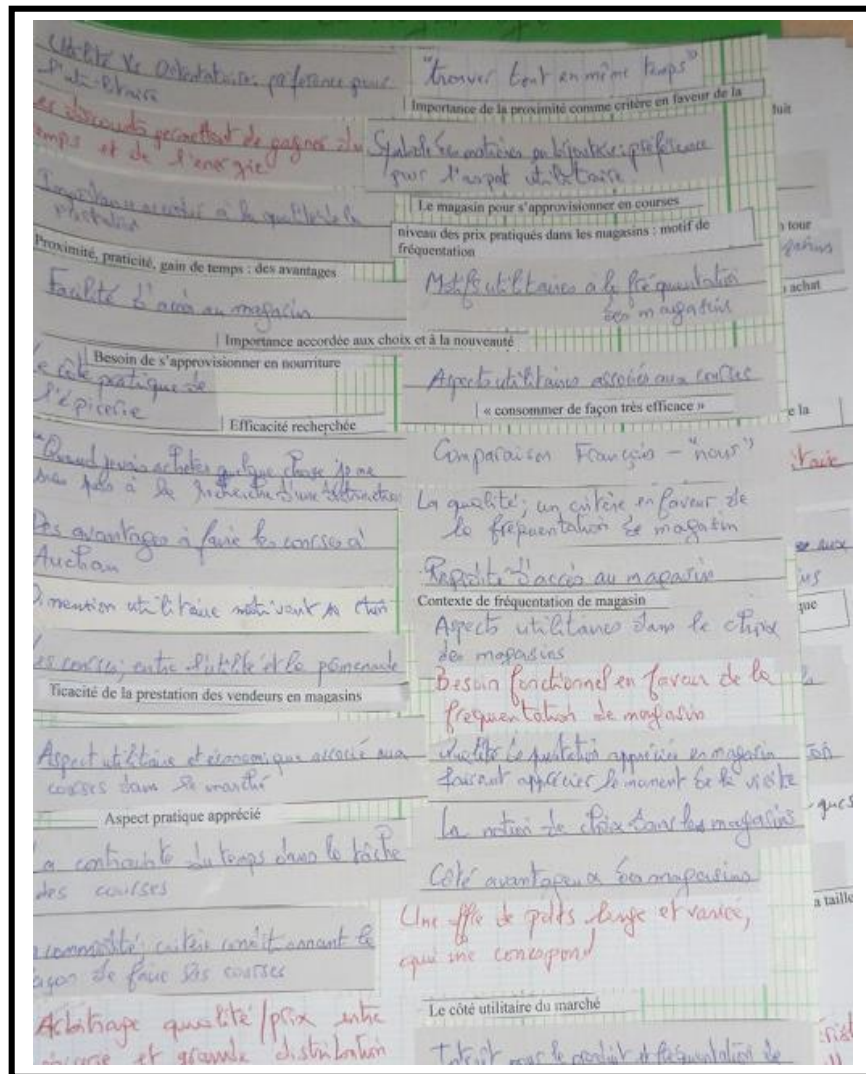 Utilité Vs Ostentatoire : préférence pour
l'utilitaire
Les discounts permettent de gagner du
temps et de l'énergie
Importance accordée à la qualité de la
prestation
Proximité, praticité, gain de temps : des avantages
Facilité d'accès au magasin
Importance accordée aux choix et à la nouveauté
Besoin de s'approvisionner en nourriture
Le côté pratique de
l'épicerie
Efficacité recherchée
"Quand je vais acheter quelque chose je ne
suis pas à la recherche d'une distraction
Des avantages à faire les courses à
Auchan
Dimention utilitaire motivant
Les courses ; entre l'utilité et la promenade
ficacité de la prestation des vendeurs en magasins
Aspect utilitaire et économique associé aux
courses dans le marché
Aspect pratique apprécié
La contrainte du temps dans la tâche
des courses
commodité ; critère conditionnant la
façon de faire ses courses
Arbitrage qualité/prix entre
épicerie et grande distribution
"trouver tout en même temps"
Importance de la proximité comme critère en faveur de la
préférence
pour l'aspect utilitaire
Le magasin pour s'approvisionner en courses
niveau des prix pratiqués dans les magasins : motif de
fréquentation
Motifs utilitaires à la fréquentation
des magasins
Aspects utilitaires associés aux courses
« consommer de façon très efficace »
Comparaison Français - "nous"
La qualité ; un critère en faveur de
la fréquentation de magasin
Rapidité d'accès au magasin
Contexte de fréquentation de magasin
Aspects utilitaires dans le choix
des magasins
Besoin fonctionnel en faveur de la
fréquentation de magasin
Qualité de prestation appréciée en magasin
faisant apprécier le moment de la visite
La notion de choix dans les magasins
Côté avantageux des magasins
Une offre de pdts large et variée,
qui me correspond
Le côté utilitaire du marché
Intérêt pour le produit et fréquentation de
duit
tour
achat
e la
aux
que
a taille